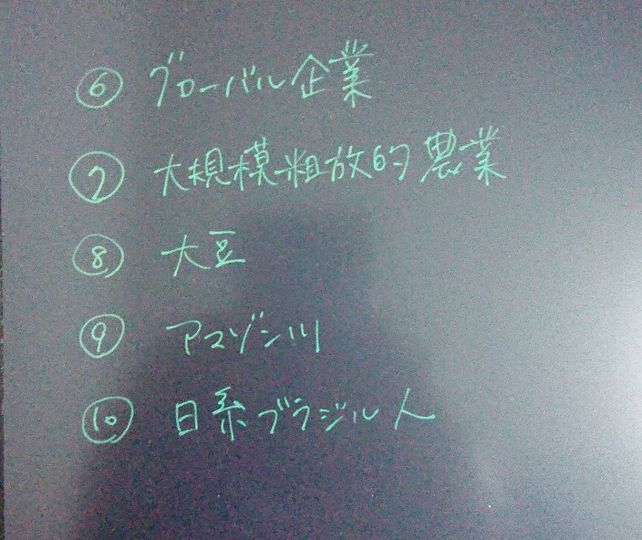 ⑥ グローバル企業
⑦ 大規模粗放的農業
⑧ 大豆
⑨ アマゾン川
⑩ 日系ブラジル人